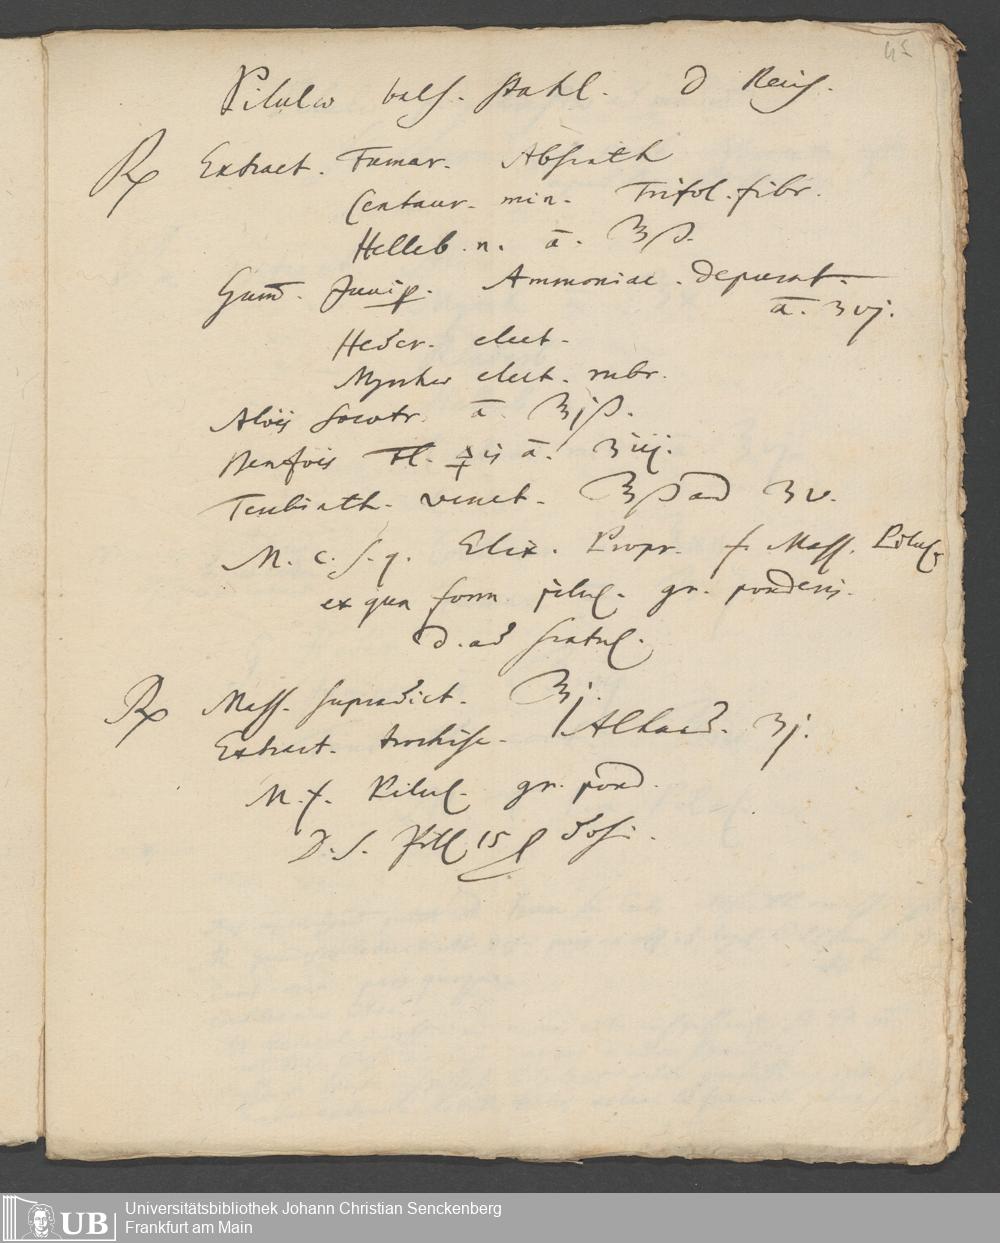 45
Pilulae bals. Stahl. D Reich.
Rx Extract. Fumar. Absinth
Centaur. min. Trifol. fibr.
Helleb. n. ā. ℥ß.
Gum̄. Junip. Ammoniac. depurat.
ā. ʒvj.
Heder. elect.
Myrrhae elect. rubr.
Aloës Socotr. ā. ℥jß.
Benzois ā. ʒiij.
Terbinth. venet. ℥ß ad ʒv.
M. c. s. q. Elix. Propr. f. Mass. Pilul.
ex qua form pilul. gr. ponderis.
D. ad scatul.
Rx Mass. supradict. ℥j.
Extract. trochisc. Alhand. ʒj.
M. f. Pilul. gr. pond.
D. S. Pill 15 dosi.
UB
Universitätsbibliothek Johann Christian Senckenberg
Frankfurt am Main